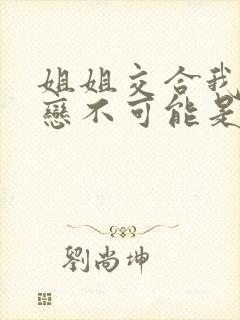 姐姐交合我
戀不可能是
劉尚坤